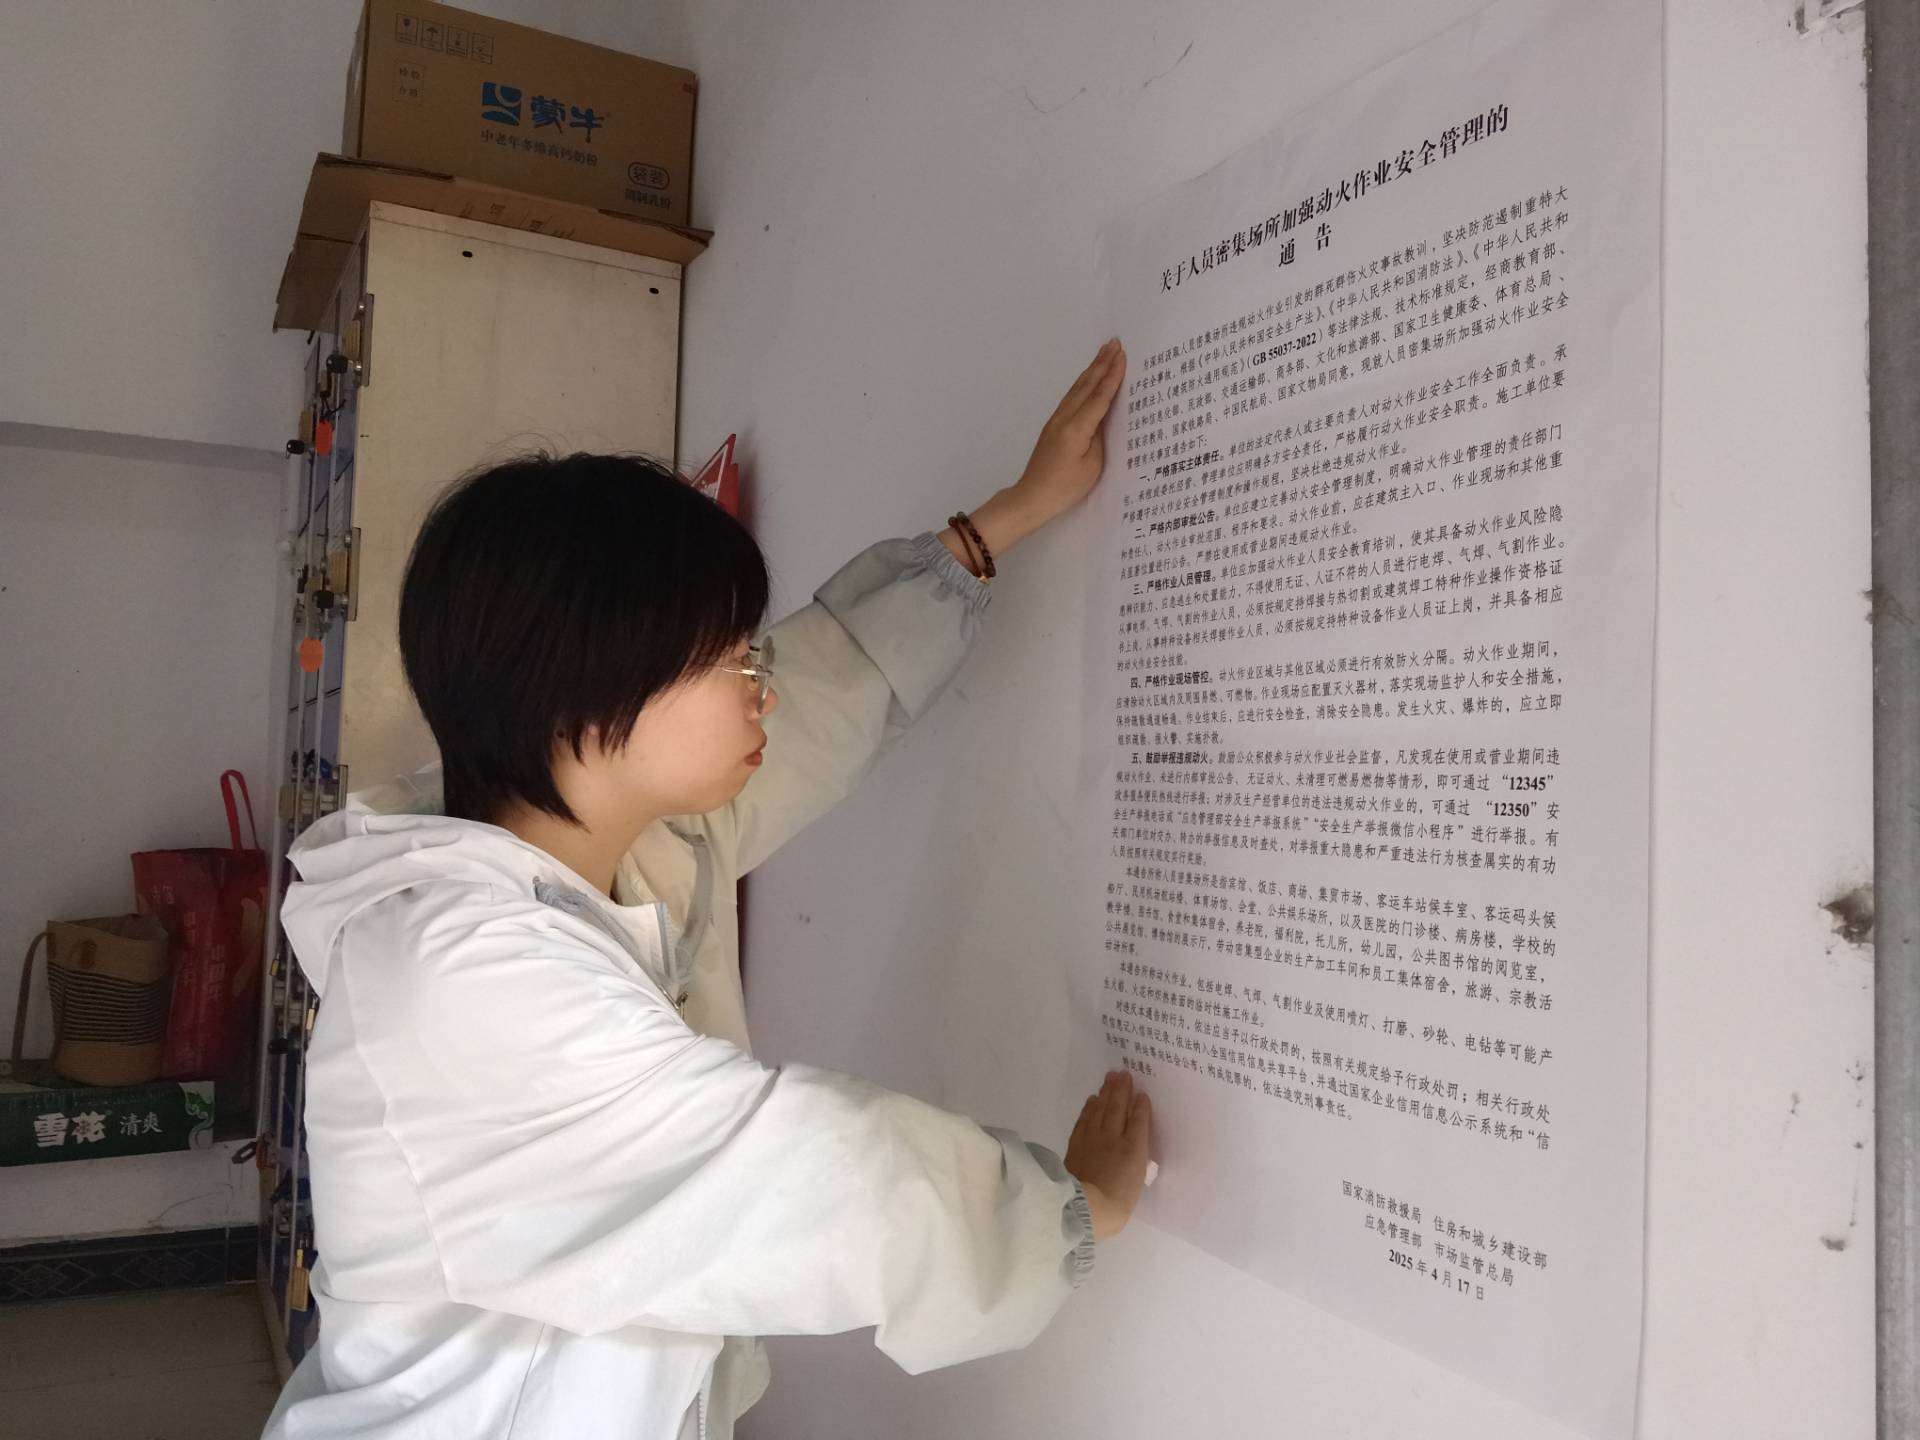 蒙牛
中老年多维高钙奶粉
袋装
调制乳粉
检验
合格
雪花 清爽
关于人员密集场所加强动火作业安全管理的
通 告
为深刻汲取人员密集场所违规动火作业引发的群死群伤火灾事故教训，坚决防范遏制重特大
生产安全事故，根据《中华人民共和国安全生产法》、《中华人民共和国消防法》、《中华人民共和
国建筑法》、《建筑防火通用规范》（GB 55037-2022）等法律法规、技术标准规定，经商教育部、
工业和信息化部、民政部、交通运输部、商务部、文化和旅游部、国家卫生健康委、体育总局、
国家宗教局、国家铁路局、中国民航局、国家文物局同意，现就人员密集场所加强动火作业安全
管理有关事宜通告如下：
一、严格落实主体责任。单位的法定代表人或主要负责人对动火作业安全工作全面负责。承
包、承租或委托经营、管理单位应明确各方安全责任，严格履行动火作业安全职责。施工单位要
严格遵守动火作业安全管理制度和操作规程，坚决杜绝违规动火作业。
二、严格内部审批公告。单位应建立完善动火安全管理制度，明确动火作业管理的责任部门
和责任人，动火作业审批范围、程序和要求。动火作业前，应在建筑主入口、作业现场和其他重
点显著位置进行公告。严禁在使用或营业期间违规动火作业。
三、严格作业人员管理。单位应加强动火作业人员安全教育培训，使其具备动火作业风险隐
患辨识能力、应急逃生和处置能力，不得使用无证、人证不符的人员进行电焊、气焊、气割作业。
从事电焊、气焊、气割的作业人员，必须按规定持焊接与热切割或建筑焊工特种作业操作资格证
书上岗，从事特种设备相关焊接作业人员，必须按规定持特种设备作业人员证上岗，并具备相应
的动火作业安全技能。
四、严格作业现场管控。动火作业区域与其他区域必须进行有效防火分隔。动火作业期间，
应清除动火区域内及周围易燃、可燃物。作业现场应配置灭火器材，落实现场监护人和安全措施，
保持疏散通道畅通。作业结束后，应进行安全检查，消除安全隐患。发生火灾、爆炸的，应立即
组织疏散、报火警、实施扑救。
五、鼓励举报违规动火。鼓励公众积极参与动火作业社会监督，凡发现在使用或营业期间违
规动火作业、未进行内部审批公告、无证动火、未清理可燃易燃物等情形，即可通过“12345”
政务服务便民热线进行举报；对涉及生产经营单位的违法违规动火作业的，可通过“12350”安
全生产举报电话或“应急管理部安全生产举报系统”“安全生产举报微信小程序”进行举报。有
关部门单位对交办、转办的举报信息及时查处，对举报重大隐患和严重违法行为核查属实的有功
人员按照有关规定实行奖励。
本通告所称人员密集场所是指宾馆、饭店、商场、集贸市场、客运车站候车室、客运码头候
船厅、民用机场航站楼、体育场馆、会堂、公共娱乐场所，以及医院的门诊楼、病房楼，学校的
教学楼、图书馆、食堂和集体宿舍，养老院，福利院，托儿所，幼儿园，公共图书馆的阅览室，
公共展览馆、博物馆的展示厅，劳动密集型企业的生产加工车间和员工集体宿舍，旅游、宗教活
动场所等。
本通告所称动火作业，包括电焊、气焊、气割作业及使用喷灯、打磨、砂轮、电钻等可能产
生火焰、火花和炽热表面的临时性施工作业。
对违反本通告的行为，依法应当予以行政处罚的，按照有关规定给予行政处罚；相关行政处
罚信息记入信用记录，依法纳入全国信用信息共享平台，并通过国家企业信用信息公示系统和“信
用中国”网站等向社会公布；构成犯罪的，依法追究刑事责任。
特此通告。
国家消防救援局 住房和城乡建设部
应急管理部 市场监管总局
2025年4月17日